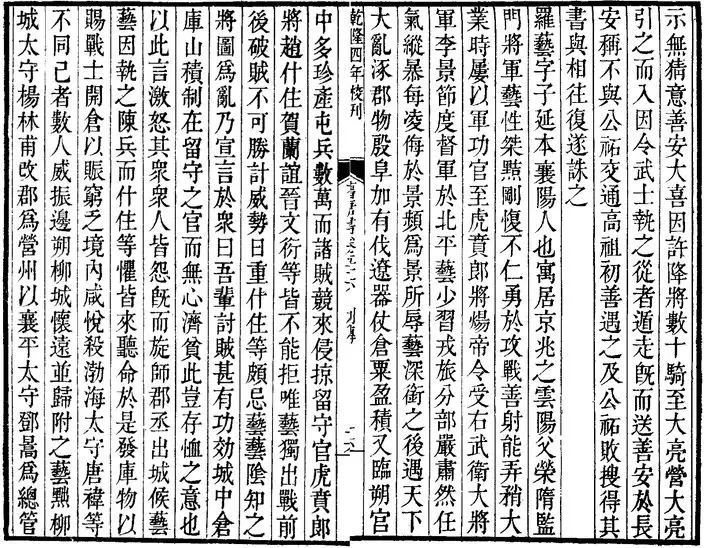 示無猜意善安大喜因許降將數十騎至大亮營大亮
引之而入因令武士執之從者遁走旣而送善安於長
安稱不與公祏交通高祖初善遇之及公祏敗搜得其
書與相往復遂誅之
羅藝字子延本襄陽人也寓居京兆之雲陽父榮隋監
門將軍藝性桀黠剛愎不仁勇於攻戰善射能弄矟大
業時屢以軍功官至虎賁郎將煬帝令受右武衛大將
軍李景節度督軍於北平藝少習戎旅分部嚴肅然任
氣縱暴每凌侮於景頻爲景所辱藝深銜之後遇天下
大亂涿郡物殷阜加有伐遼器仗倉粟盈積又臨朔宮
乾隆四年校刋
舊唐書卷五十六 列傳
中多珍產屯兵數萬而諸賊競來侵掠留守官虎賁郎
將趙什住賀蘭誼晉文衍等皆不能拒唯藝獨出戰前
後破賊不可勝計威勢日重什住等頗忌藝藝陰知之
將圖爲亂乃宣言於衆曰吾輩討賊甚有功効城中倉
庫山積制在留守之官而無心濟貧此豈存恤之意也
以此言激怒其衆衆人皆怨旣而旋師郡丞出城候藝
藝因執之陳兵而什住等懼皆來聽命於是發庫物以
賜戰士開倉以賑窮乏境內咸悅殺渤海太守唐禕等
不同己者數人威振邊朔柳城懷遠並歸附之藝黜柳
城太守楊林甫改郡爲營州以襄平太守鄧暠爲總管